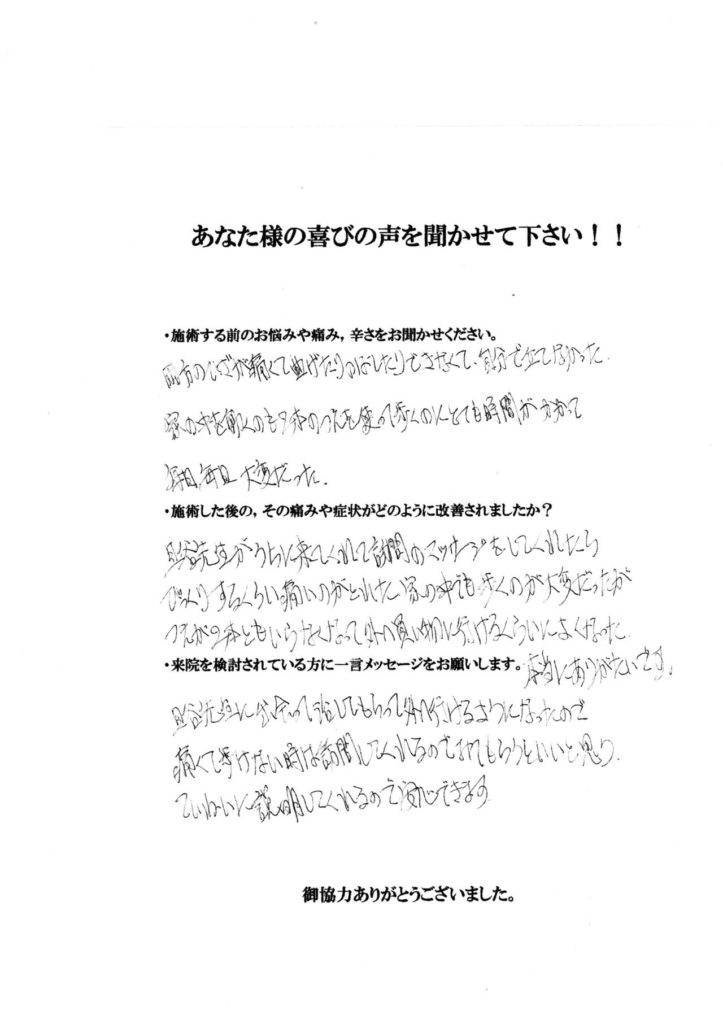 あなた様の喜びの声を聞かせて下さい！！
・施術する前のお悩みや痛み，辛さをお聞かせください。
両方のひざが痛くて曲げたりのばしたりできなくて、自分で立てなかった.
家の中を動くのも2本のつえを使って歩くのにとても時間がかかって
毎日毎日大変だった.
・施術した後の，その痛みや症状がどのように改善されましたか？
先生がうちに来てくれて訪問のマッサージをしてくれたら
びっくりするくらい痛いのがとれた。家の中でも歩くのが大変だったが
つえが2本ともいらなくなって外の買い物に行けるくらいによくなった.
・来院を検討されている方に一言メッセージをお願いします。
本当にありがたいです。
先生に出会って治してもらって外に行けるようになったので
痛くて歩けない時は訪問してくれるのできてもらうといいと思う.
ていねいに説明してくれるので安心できます
御協力ありがとうございました。